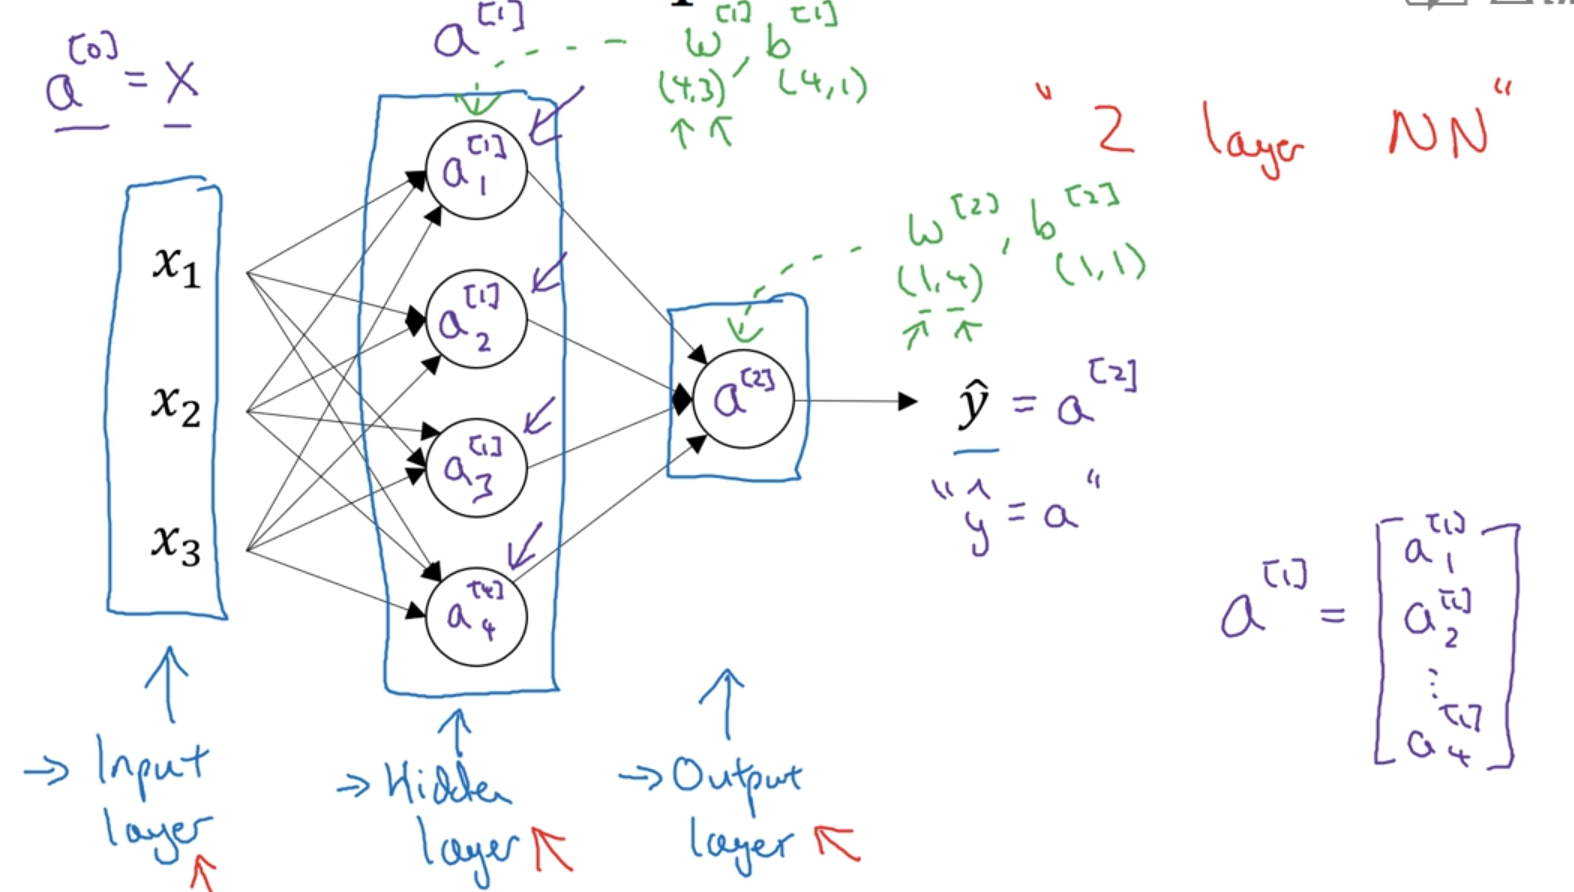 a^[1]
w^[1], b^[1]
(4,3) (4,1)
a^[0] = X
"2 layer NN"
x₁
x₂
x₃
a₁^[1]
a₂^[1]
a₃^[1]
a₄^[4]
w^[2], b^[2]
(1,4) (1,1)
a^[2]
ŷ = a^[2]
"ŷ = a"
a^[1] = [
a₁^[1]
a₂^[1]
⋮
a₄^[1]
]
→ Input
layer
→ Hidden
layer
→ Output
layer